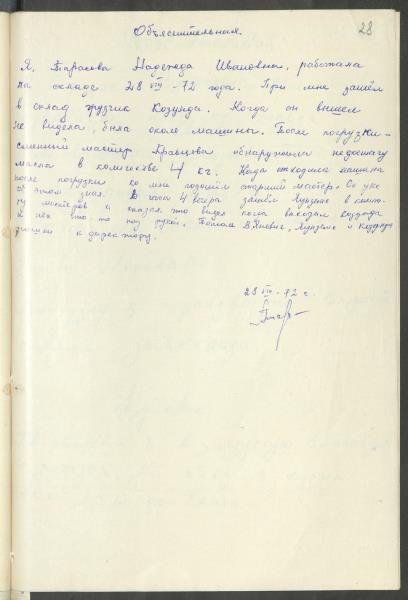 28
Объяснительная.
Я, Тарасова Надежда Ивановна, работала
на складе 28 VIII - 72 года. При мне зашёл
в склад грузчик Козулда. Когда он вышел
не видела, была около машины. После погрузки -
сменный мастер Кравцова обнаружила недостачу
масла в количестве 4 кг. Когда отходила машина
после погрузки ко мне подошёл старший мастер. Он уже
об этом знал. В часа 4 вечера зашёл Луценко в
мастеров и сказал, что видел когда выходил Козулда
и нёс что-то под рукой. Потом Луценко и Козулда
к директору.
28 VIII - 72 г.